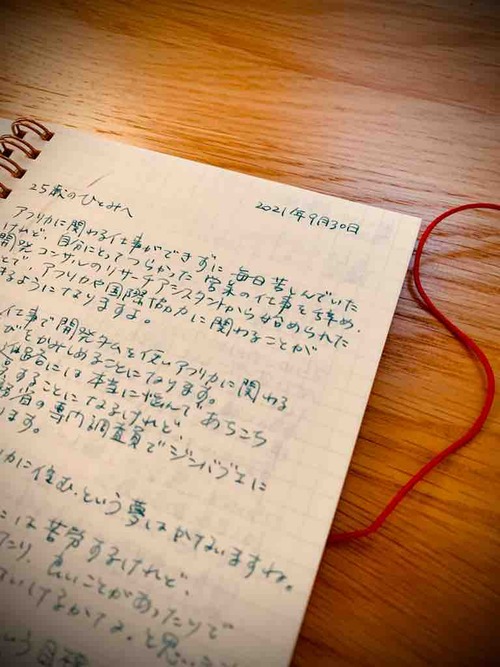 2021年9月30日
25歳のひとみへ
アフリカに関わる仕事ができずに毎日苦しんでいた
けれど、自分にとってつらかった営業の仕事を辞め、
開発コンサルのリサーチアシスタントから始められた
とで、アフリカや国際協力に関わることが
きるようになりますよ。
仕事で開発チームを使いアフリカに関わる
びをかみしめることになります。
には本当に悩んで、あちこち
することになるけれど、
省の専門調査員でジンバブエに
ます。
カに住む、という夢はかないますね。
には苦労するけれど、
たり、良いことがあったりで
ていけるかな、と思い
いう目標